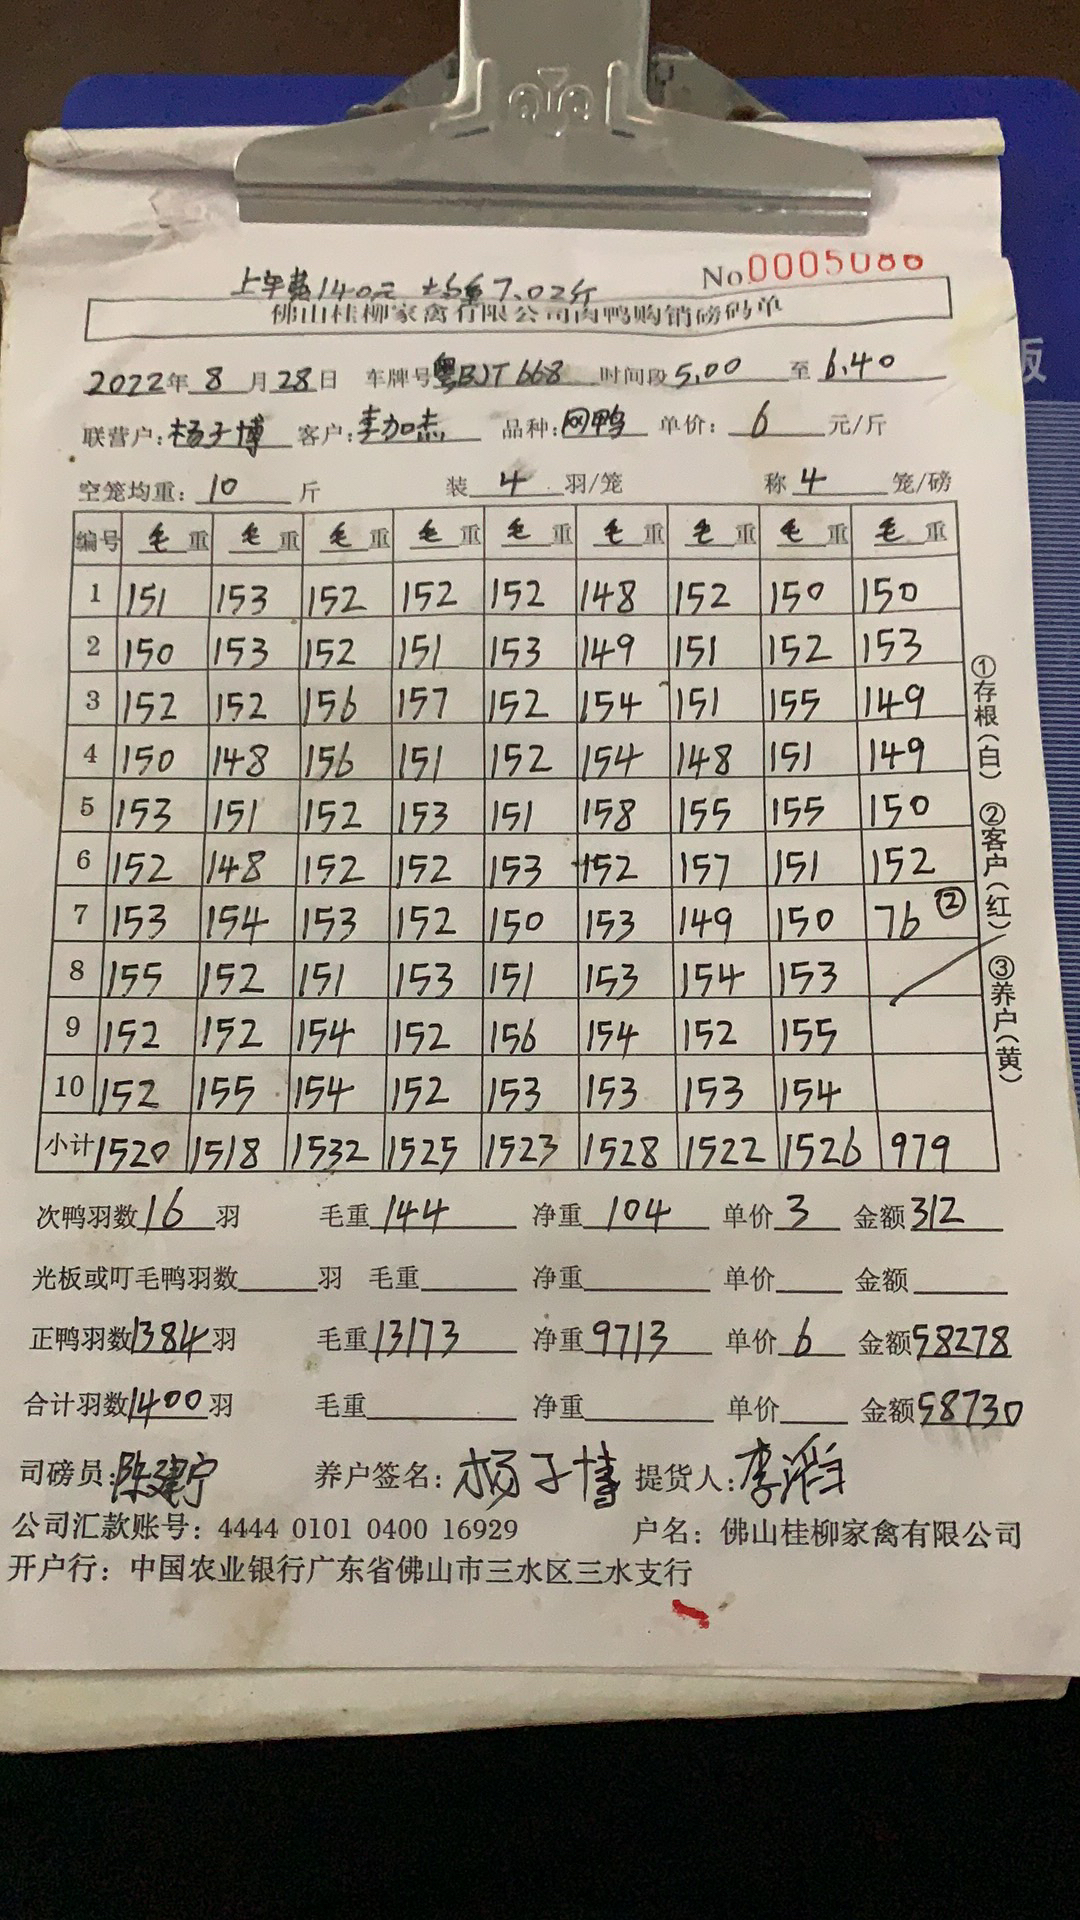 No 0005086
上车费140元 均重7.02斤
佛山桂柳家禽有限公司肉鸭购销磅码单
2022年 8 月 28 日 车牌号 粤BJT668 时间段 5.00 至 6.40
联营户: 杨子博 客户: 李加杰 品种: 网鸭 单价: 6 元/斤
空笼均重: 10 斤 装 4 羽/笼 称 4 笼/磅
编号 毛重 毛重 毛重 毛重 毛重 毛重 毛重 毛重 毛重
1 151 153 152 152 152 148 152 150 150
2 150 153 152 151 153 149 151 152 153
3 152 152 156 157 152 154 151 155 149
4 150 148 156 151 152 154 148 151 149
5 153 151 152 153 151 158 155 155 150
6 152 148 152 152 153 152 157 151 152
7 153 154 153 152 150 153 149 150 76 ②
8 155 152 151 153 151 153 154 153
9 152 152 154 152 156 154 152 155
10 152 155 154 152 153 153 153 154
小计 1520 1518 1532 1525 1523 1528 1522 1526 979
①存根(白) ②客户(红) ③养户(黄)
次鸭羽数 16 羽 毛重 144 净重 104 单价 3 金额 312
光板或叮毛鸭羽数 羽 毛重 净重 单价 金额
正鸭羽数 1384 羽 毛重 13173 净重 9713 单价 6 金额 58278
合计羽数 1400 羽 毛重 净重 单价 金额 58730
司磅员: 陈建宁 养户签名: 杨子博 提货人: 李滔
公司汇款账号: 4444 0101 0400 16929 户名: 佛山桂柳家禽有限公司
开户行: 中国农业银行广东省佛山市三水区三水支行